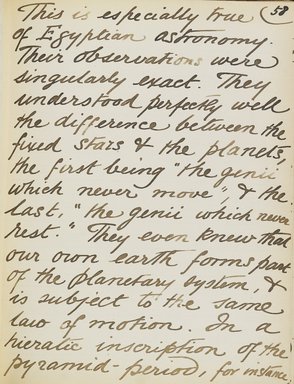 This is especially true 58
of Egyptian astronomy.
Their observations were
singularly exact. They
understood perfectly well
the difference between the
fixed stars & the planets,
the first being "the genii
which never move", & the
last, "the genii which never
rest." They even knew that
our own earth forms part
of the planetary system, &
is subject to the same
law of motion. In a
hieratic inscription of the
pyramid-period, for instance,